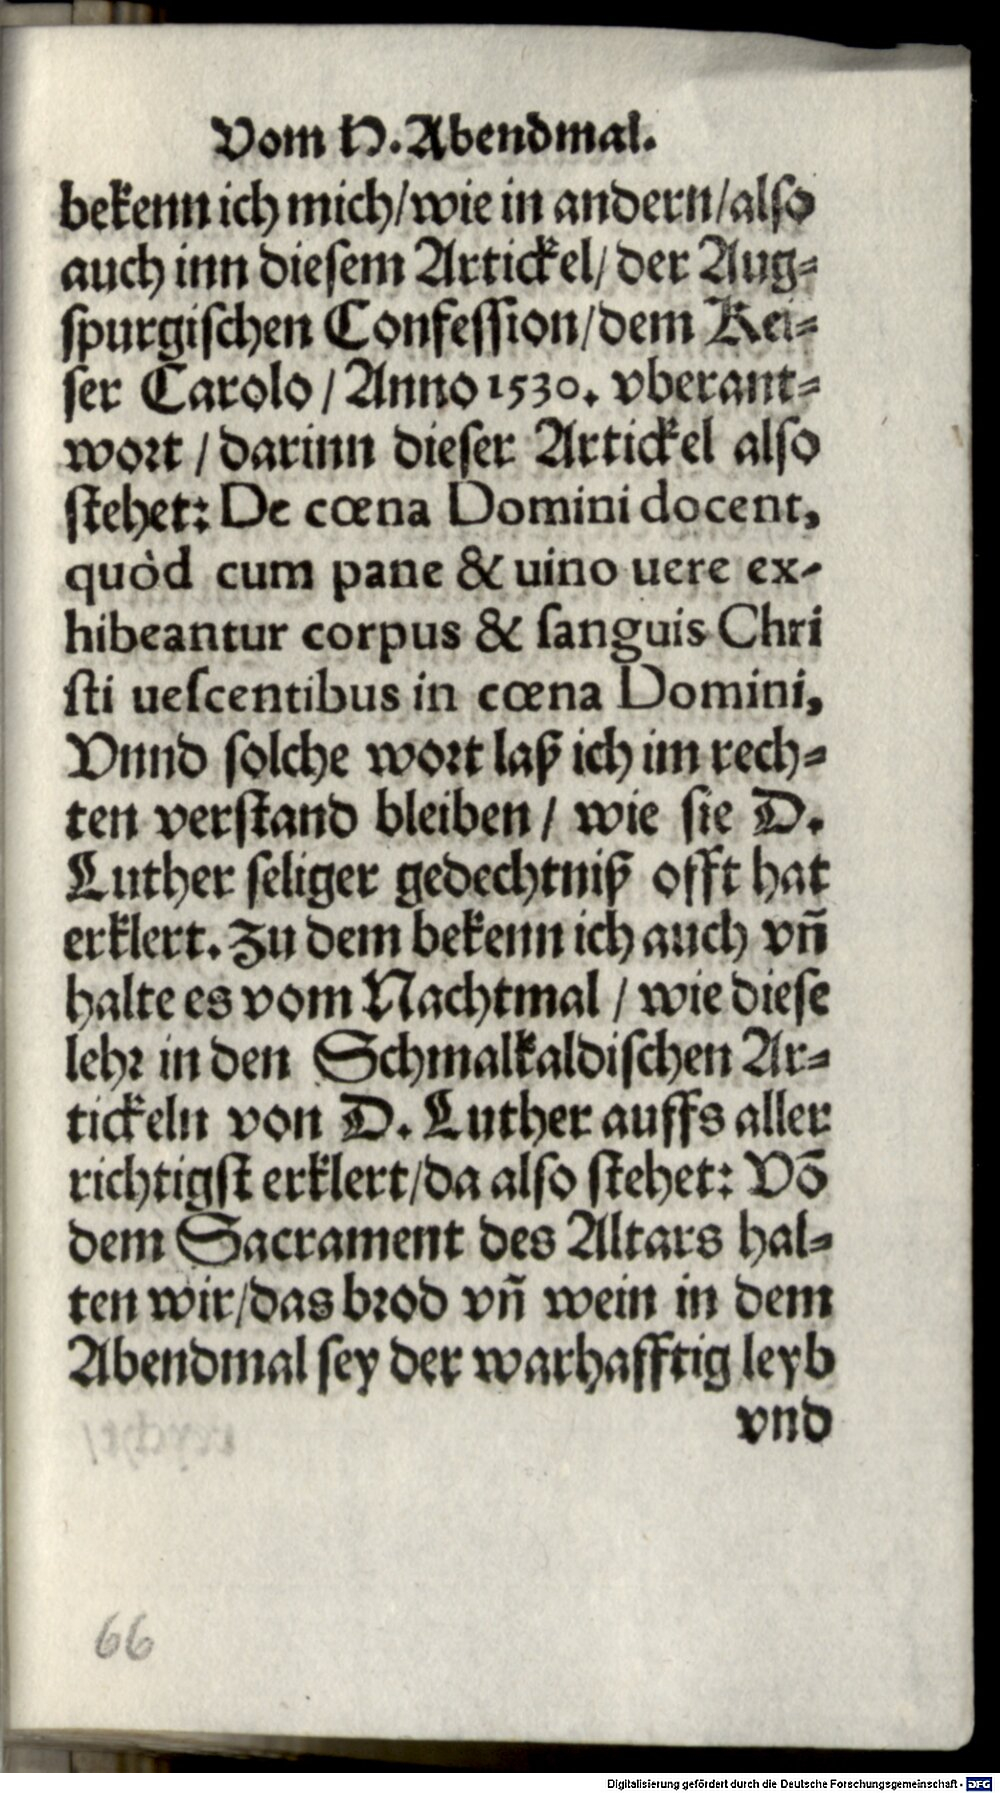 Vom H. Abendmal.
bekenn ich mich/wie in andern/also
auch inn diesem Artickel/der Aug-
spurgischen Confession/dem Kei-
ser Carolo / Anno 1530. vberant-
wort / darinn dieser Artickel also
stehet: De cœna Domini docent,
quòd cum pane & uino uere ex-
hibeantur corpus & sanguis Chri
sti uescentibus in cœna Domini,
Vnnd solche wort laß ich im rech-
ten verstand bleiben / wie sie D.
Luther seliger gedechtniß offt hat
erklert. Zu dem bekenn ich auch vñ
halte es vom Nachtmal / wie diese
lehr in den Schmalkaldischen Ar-
tickeln von D. Luther auffs aller
richtigst erklert/da also stehet: Võ
dem Sacrament des Altars hal-
ten wir/das brod vñ wein in dem
Abendmal sey der warhafftig leyb
vnd
66
Digitalisierung gefördert durch die Deutsche Forschungsgemeinschaft - DFG